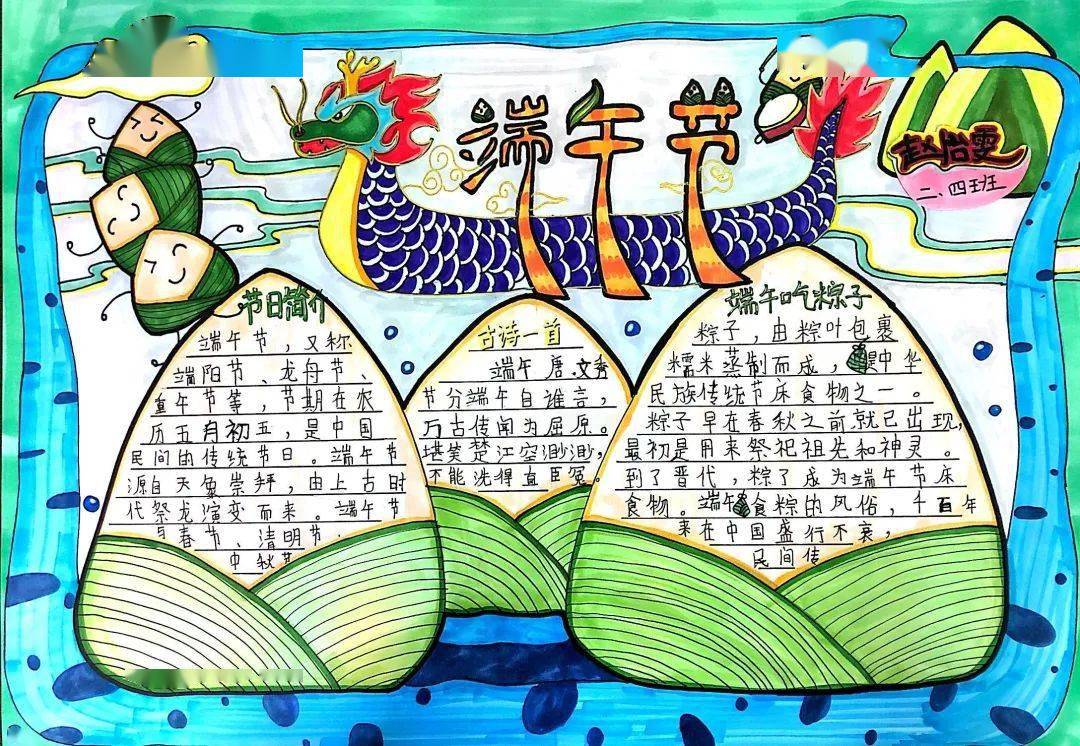 端午节
赵怡雯
二、四班
节日简介
端午节，又称
端阳节、龙舟节、
重午节等，节期在农
历五月初五，是中国
民间的传统节日。端午节
源自天象崇拜，由上古时
代祭龙演变而来。端午节
与春节、清明节、
中秋节
古诗一首
端午 唐.文秀
节分端午自谁言，
万古传闻为屈原。
堪笑楚江空渺渺，
不能洗得直臣冤。
端午吃粽子
粽子，由粽叶包裹
糯米蒸制而成，是中华
民族传统节庆食物之一。
粽子早在春秋之前就已出现，
最初是用来祭祀祖先和神灵。
到了晋代，粽子成为端午节庆
食物。端午食粽的风俗，千百年
来在中国盛行不衰，
民间传